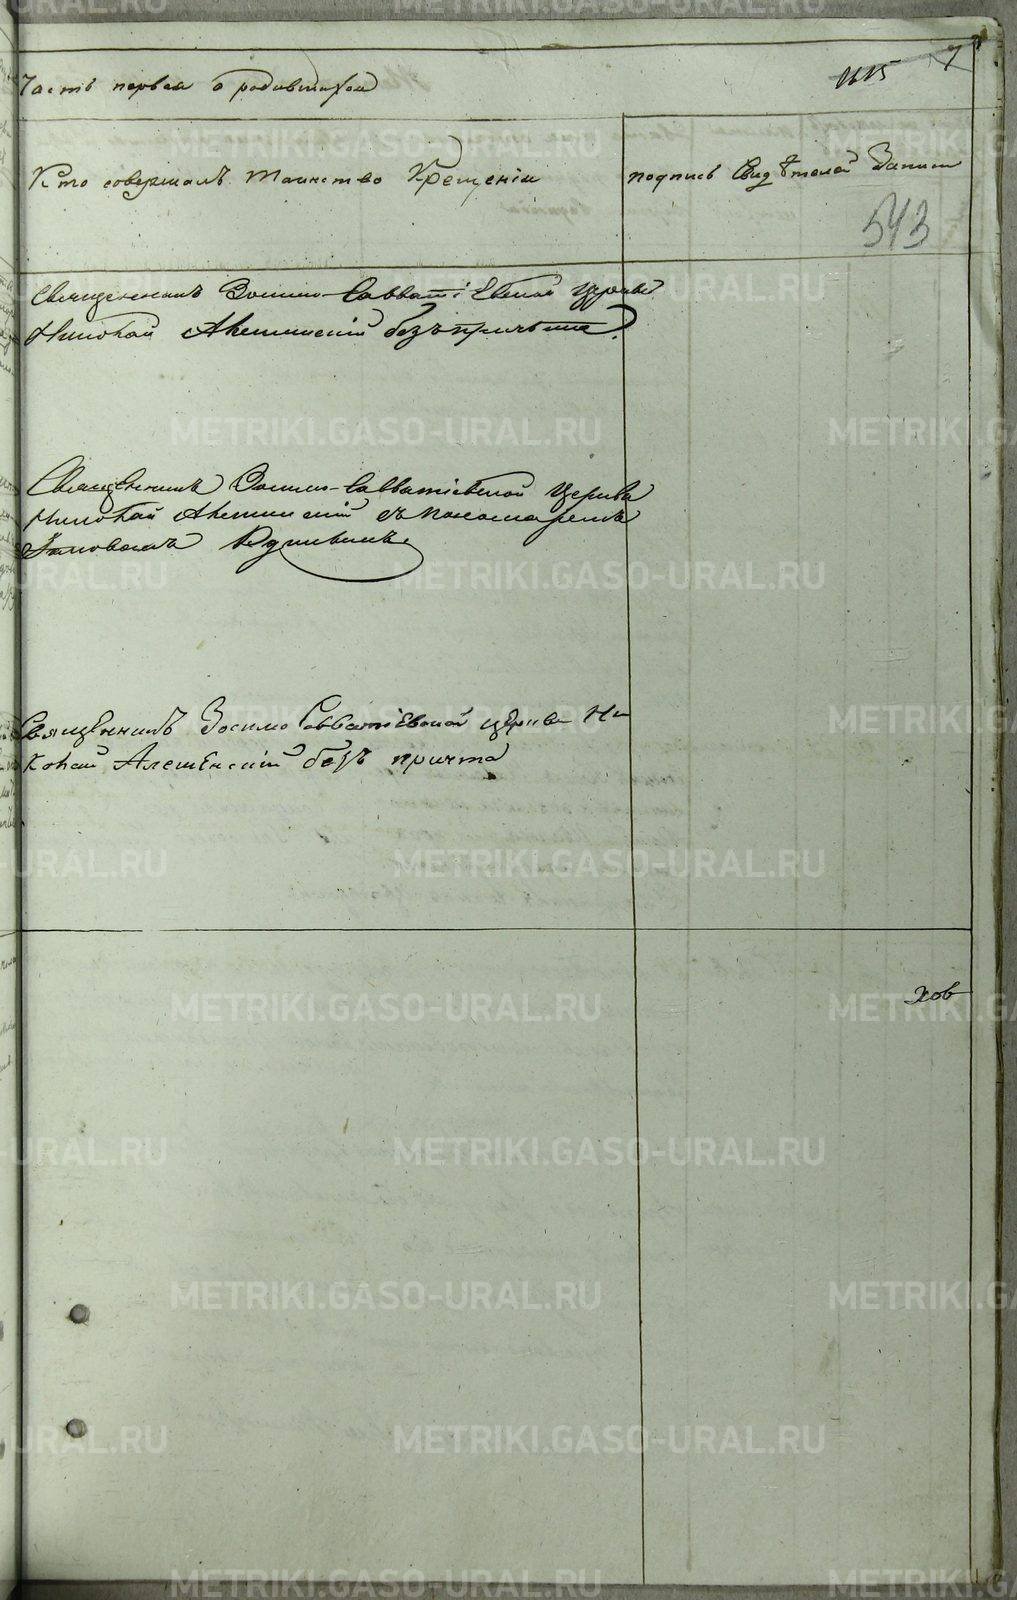 Часть первая о родившихся
1115
7
Кто совершалъ Таинство Крещенія
подпись Свидѣтелей Записи
543
Священникъ Зосимо-Савватіевской Церкви
Николай безъ причта
Священникъ Зосимо-Савватіевской Церкви
Николай съ пономаремъ
Яковомъ
Священникъ Зосимо Савватіевской церкви Ни
колай безъ причта
METRIKI.GASO-URAL.RU